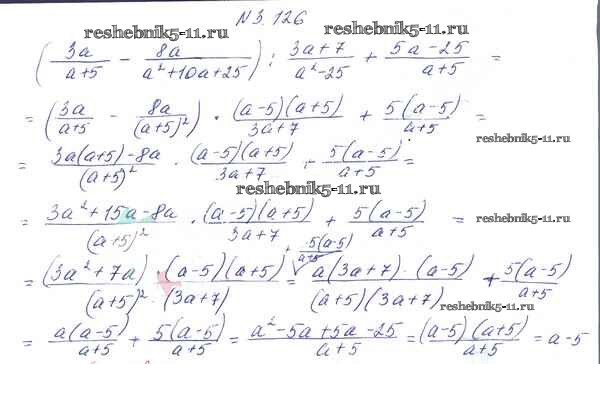 N 3.126
reshebnik5-11.ru reshebnik5-11.ru
(3a/(a+5) - 8a/(a²+10a+25)) : (3a+7)/(a²-25) + (5a-25)/(a+5) =
= (3a/(a+5) - 8a/(a+5)²) · (a-5)(a+5)/(3a+7) + 5(a-5)/(a+5) =
reshebnik5-11.ru
= (3a(a+5)-8a)/(a+5)² · (a-5)(a+5)/(3a+7) + 5(a-5)/(a+5) =
reshebnik5-11.ru
= (3a²+15a-8a)/(a+5)² · (a-5)(a+5)/(3a+7) + 5(a-5)/(a+5) =
reshebnik5-11.ru
+ 5(a-5)/(a+5)
= (3a²+7a)·(a-5)(a+5)/((a+5)²·(3a+7)) = a(3a+7)·(a-5)/((a+5)(3a+7)) + 5(a-5)/(a+5)
reshebnik5-11.ru
= a(a-5)/(a+5) + 5(a-5)/(a+5) = (a²-5a+5a-25)/(a+5) = (a-5)(a+5)/(a+5) = a-5